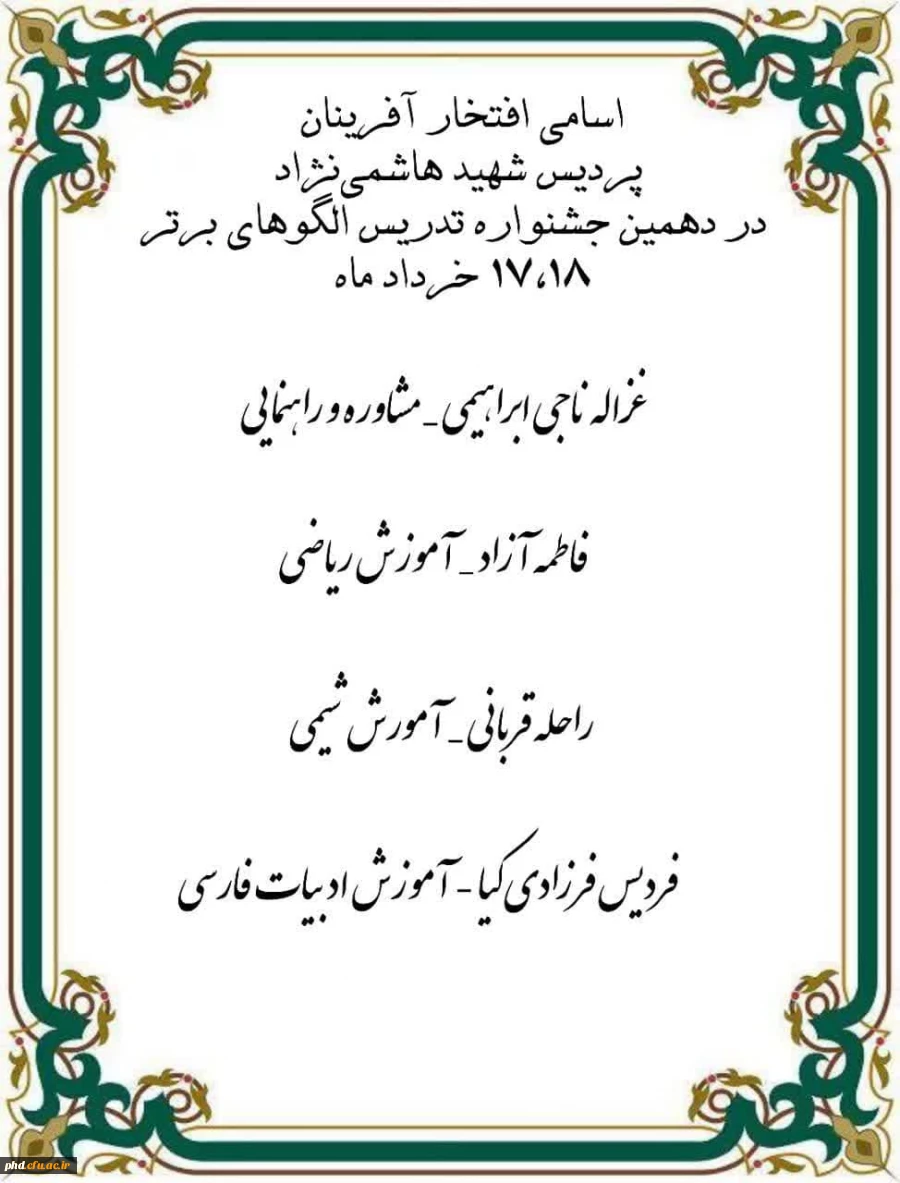 اسامی افتخار آفرینان
پردیس شهید هاشمی‌نژاد
در دهمین جشنواره تدریس الگوهای برتر
۱۷،۱۸ خرداد ماه
غزاله ناجی ابراهیمی _ مشاوره و راهنمایی
فاطمه آزاد _ آموزش ریاضی
راحله قربانی _ آمورش شیمی
فردیس فرزادی کیا - آموزش ادبیات فارسی
phd.cfu.ac.ir